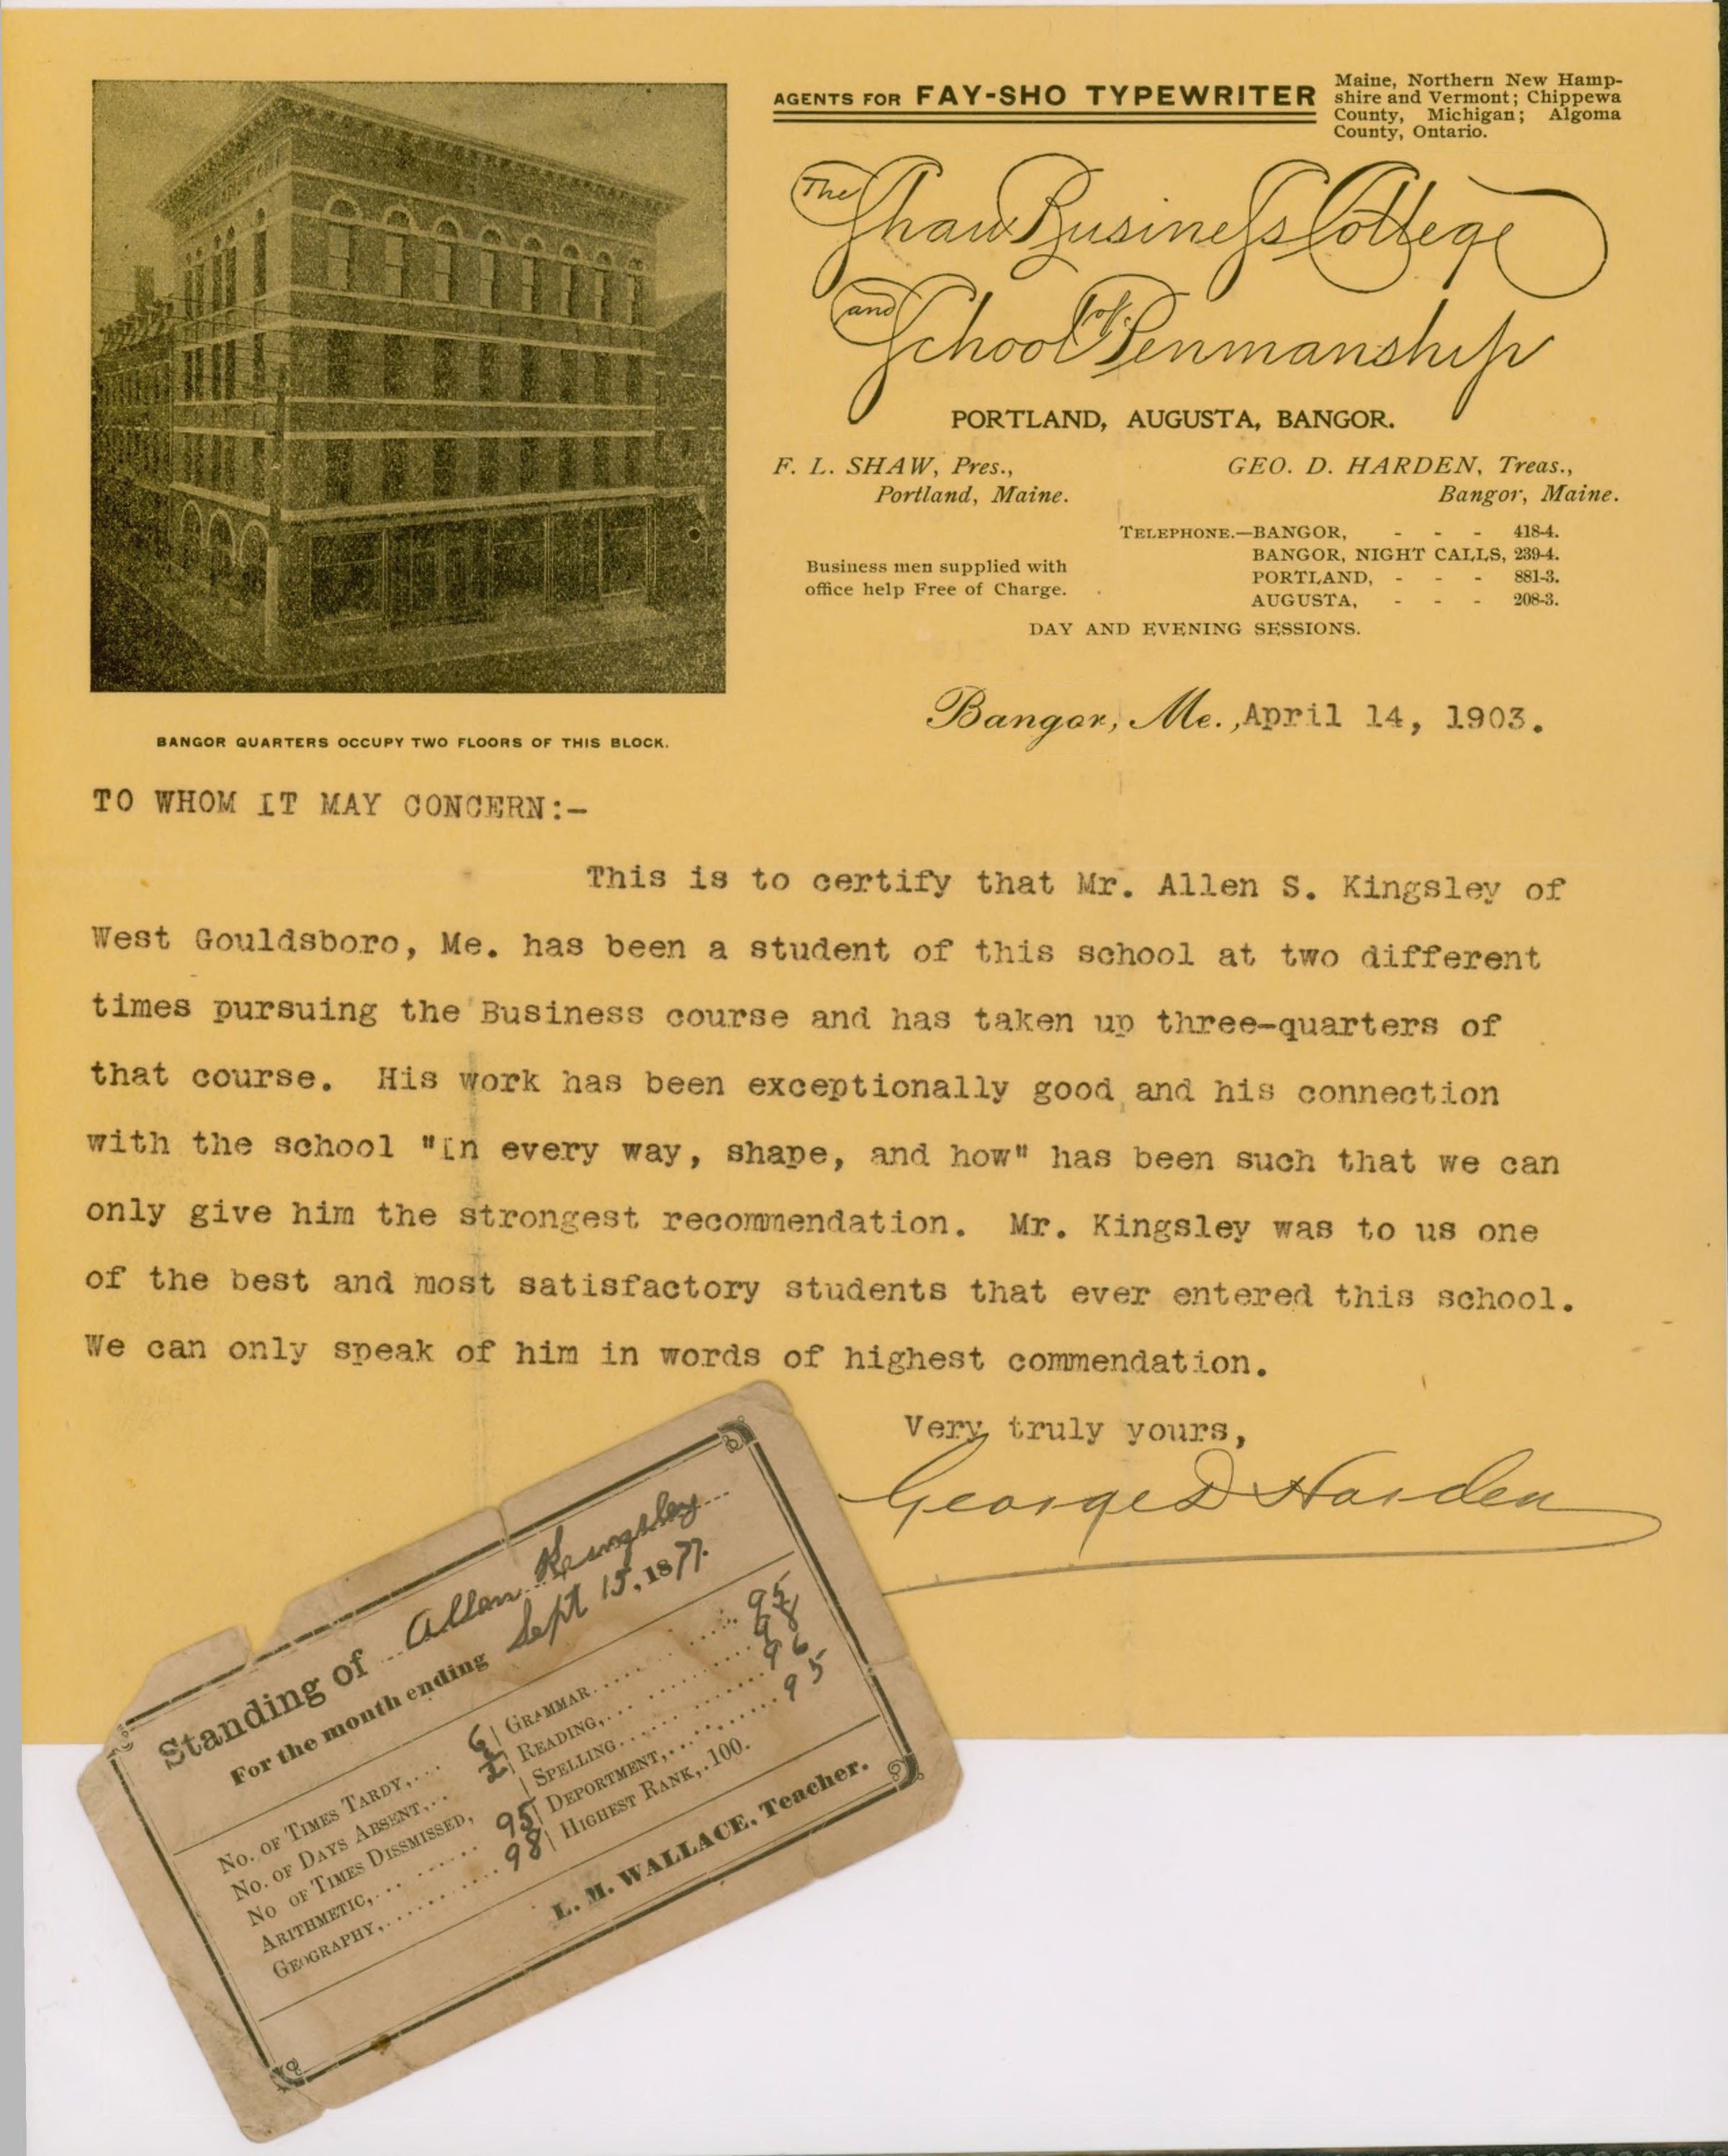 AGENTS FOR FAY-SHO TYPEWRITER
Maine, Northern New Hamp-
shire and Vermont; Chippewa
County, Michigan; Algoma
County, Ontario.
The Shaw Business College
and School of Penmanship
PORTLAND, AUGUSTA, BANGOR.
F. L. SHAW, Pres.,
Portland, Maine.
GEO. D. HARDEN, Treas.,
Bangor, Maine.
Business men supplied with
office help Free of Charge.
TELEPHONE.—BANGOR, - - - 418-4.
BANGOR, NIGHT CALLS, 239-4.
PORTLAND, - - - 881-3.
AUGUSTA, - - - 208-3.
DAY AND EVENING SESSIONS.
BANGOR QUARTERS OCCUPY TWO FLOORS OF THIS BLOCK.
Bangor, Me., April 14, 1903.
TO WHOM IT MAY CONCERN:-
This is to certify that Mr. Allen S. Kingsley of
West Gouldsboro, Me. has been a student of this school at two different
times pursuing the Business course and has taken up three-quarters of
that course. His work has been exceptionally good and his connection
with the school "in every way, shape, and how" has been such that we can
only give him the strongest recommendation. Mr. Kingsley was to us one
of the best and most satisfactory students that ever entered this school.
We can only speak of him in words of highest commendation.
Very truly yours,
George D Harden
Standing of Allen Kingsley
For the month ending Sept 15, 1877.
NO. OF TIMES TARDY, 6
NO. OF DAYS ABSENT,
NO OF TIMES DISSMISSED,
ARITHMETIC, 95
GEOGRAPHY, 98
GRAMMAR 95
READING, 98
SPELLING 96
DEPORTMENT, 95
HIGHEST RANK, 100.
L. M. WALLACE, Teacher.